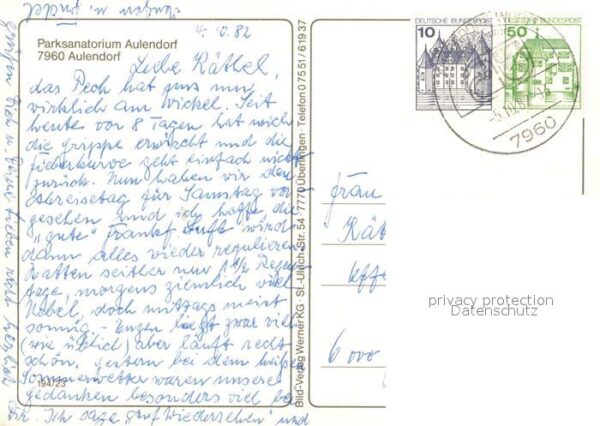 4.10.82
Parksanatorium Aulendorf
7960 Aulendorf
Liebe Käthel,
das Pech hat uns nun
wirklich am Wickel. Seit
heute vor 8 Tagen hat mich
die Grippe erwischt und die
Fieberkurve geht einfach nicht
zurück. Nun haben wir den
Abreisetag für Samstag vor-
gesehen und ich hoffe, die
"gute" Frankf. Luft wird
dann alles wieder regulieren.
Hatten seither nur 1 1/2 Regen-
tage, morgens ziemlich viel
Nebel, doch mittags meist
sonnig. - Eugen liegt zwar viel
(wie üblich) aber läuft recht
schön, gestern bei dem
Sommerwetter waren unsere
Gedanken besonders viel bei
Dir. Ich sage "auf Wiedersehen" und
194/23
Bild-Verlag Werner KG · St.-Ulrich-Str. 54 · 7770 Überlingen · Telefon 07551/61937
DEUTSCHE BUNDESPOST
10
DEUTSCHE BUNDESPOST
50
7960
Frau
Käth
6000
privacy protection
Datenschutz